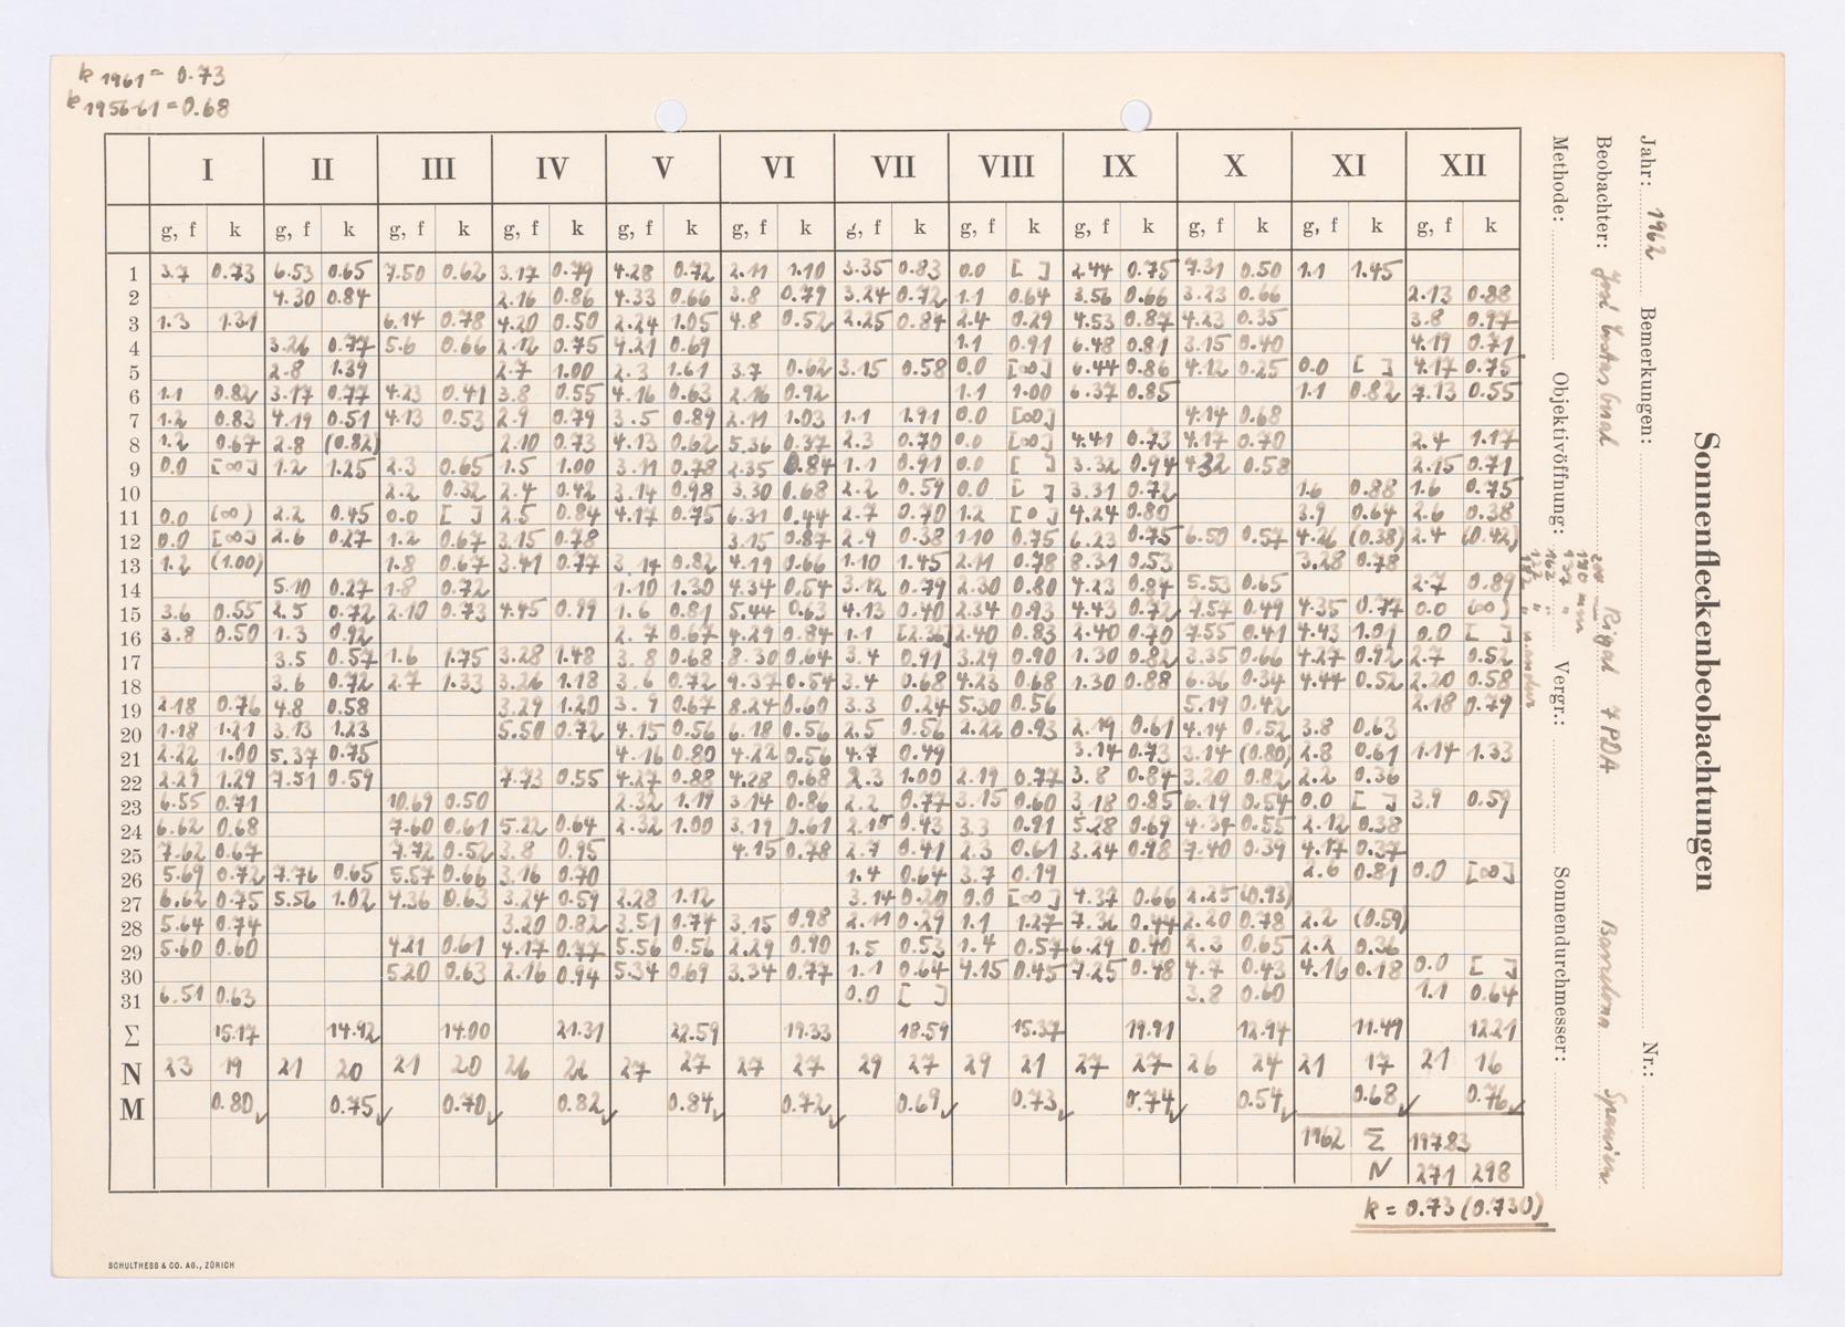 k 1961 = 0.73
k 1956-61 = 0.68
Sonnenfleckenbeobachtungen
Jahr: 1962 Bemerkungen: Nr.:
Beobachter: Rigel 4 PDA Barcelona Spanien
Methode: Objektivöffnung: Vergr.: Sonnendurchmesser:
I II III IV V VI VII VIII IX X XI XII
g, f k g, f k g, f k g, f k g, f k g, f k g, f k g, f k g, f k g, f k g, f k g, f k
1 3.7 0.73 6.53 0.65 7.50 0.62 3.17 0.79 4.28 0.72 2.11 1.10 3.35 0.83 0.0 [ ] 2.44 0.75 7.31 0.50 1.1 1.45
2 4.30 0.84 2.16 0.86 4.33 0.66 3.8 0.79 3.24 0.72 1.1 0.64 3.56 0.66 3.23 0.66 2.13 0.88
3 1.3 1.31 6.14 0.78 4.20 0.50 2.24 1.05 4.8 0.52 2.25 0.84 2.4 0.29 4.53 0.87 4.23 0.35 3.8 0.97
4 3.26 0.77 5.6 0.66 2.12 0.75 4.21 0.69 1.1 0.91 6.48 0.81 3.15 0.40 4.19 0.71
5 2.8 1.39 2.7 1.00 2.3 1.61 3.7 0.62 3.15 0.58 0.0 [∞] 6.44 0.86 4.12 0.25 0.0 [ ] 4.17 0.75
6 1.1 0.82 3.17 0.77 4.23 0.41 3.8 0.55 4.16 0.63 2.16 0.92 1.1 1.00 6.37 0.85 1.1 0.82 7.13 0.55
7 1.2 0.83 4.19 0.51 4.13 0.53 2.9 0.79 3.5 0.89 2.11 1.03 1.1 1.91 0.0 [∞] 4.14 0.68
8 1.2 0.67 2.8 (0.82) 2.10 0.73 4.13 0.62 5.36 0.37 2.3 0.70 0.0 [∞] 4.41 0.73 4.17 0.70 2.4 1.17
9 0.0 [∞] 1.2 1.25 2.3 0.65 1.5 1.00 3.11 0.78 2.35 0.84 1.1 0.91 0.0 [ ] 3.32 0.94 4.32 0.58 2.15 0.71
10 2.2 0.32 2.4 0.42 3.14 0.98 3.30 0.68 2.2 0.59 0.0 [ ] 3.31 0.72 1.6 0.88 1.6 0.75
11 0.0 (∞) 2.2 0.45 0.0 [ ] 2.5 0.84 4.17 0.75 6.31 0.44 2.7 0.70 1.2 [0] 4.24 0.80 3.9 0.64 2.6 0.38
12 0.0 [∞] 2.6 0.27 1.2 0.67 3.15 0.78 3.15 0.87 2.9 0.38 1.10 0.75 6.23 0.75 6.50 0.57 4.26 (0.38) 2.4 (0.42)
13 1.2 (1.00) 1.8 0.67 3.41 0.77 3.14 0.82 4.19 0.66 1.10 1.45 2.11 0.78 8.31 0.53 3.28 0.78
14 5.10 0.27 1.8 0.72 1.10 1.30 4.34 0.54 3.12 0.79 2.30 0.80 4.23 0.84 5.53 0.65 2.7 0.89
15 3.6 0.55 2.5 0.72 2.10 0.73 4.45 0.99 1.6 0.81 5.44 0.63 4.13 0.40 2.34 0.93 4.43 0.72 7.57 0.49 4.35 0.77 0.0 (∞)
16 3.8 0.50 1.3 0.92 2.7 0.67 4.29 0.84 1.1 [2.36] 2.40 0.83 2.40 0.70 7.55 0.41 4.43 1.01 0.0 [ ]
17 3.5 0.57 1.6 1.75 3.28 1.48 3.8 0.68 8.30 0.64 3.4 0.91 3.29 0.90 1.30 0.82 3.35 0.66 4.27 0.92 2.7 0.52
18 3.6 0.72 2.7 1.33 3.26 1.18 3.6 0.72 9.37 0.54 3.4 0.68 4.23 0.68 1.30 0.88 6.36 0.34 4.44 0.52 2.20 0.58
19 2.18 0.76 4.8 0.58 3.29 1.20 3.9 0.67 8.24 0.60 3.3 0.24 5.30 0.56 5.19 0.42 2.18 0.79
20 1.18 1.21 3.13 1.23 5.50 0.72 4.15 0.56 6.18 0.56 2.5 0.56 2.22 0.93 2.19 0.61 4.14 0.52 3.8 0.63
21 2.22 1.00 5.37 0.75 4.16 0.80 4.22 0.56 4.7 0.49 3.14 0.73 3.14 (0.80) 2.8 0.61 1.14 1.33
22 2.29 1.29 7.51 0.59 7.73 0.55 4.27 0.88 4.28 0.68 2.3 1.00 2.19 0.77 3.8 0.84 3.20 0.82 2.2 0.36
23 6.55 0.71 10.69 0.50 2.32 1.19 3.14 0.86 2.2 0.77 3.15 0.60 3.18 0.85 6.19 0.54 0.0 [ ] 3.9 0.59
24 6.62 0.68 7.60 0.61 5.22 0.64 2.32 1.00 3.19 0.61 2.10 0.43 3.3 0.91 5.28 0.69 4.34 0.55 2.12 0.38
25 7.62 0.67 7.72 0.52 3.8 0.95 4.15 0.78 2.7 0.41 2.3 0.61 3.24 0.98 7.40 0.39 4.17 0.37
26 5.69 0.72 7.76 0.65 5.57 0.66 3.16 0.70 1.4 0.64 3.7 0.19 2.6 0.81 0.0 [∞]
27 6.62 0.75 5.56 1.02 4.36 0.63 3.24 0.59 2.28 1.12 3.14 0.20 0.0 [∞] 4.37 0.66 2.25 (0.93)
28 5.64 0.74 3.20 0.82 3.51 0.74 3.15 0.98 2.11 0.29 1.1 1.27 7.36 0.44 2.20 0.78 2.2 (0.59)
29 5.60 0.60 4.21 0.61 4.17 0.77 5.56 0.56 2.29 0.90 1.5 0.53 1.4 0.57 6.29 0.40 2.3 0.65 2.2 0.36
30 5.20 0.63 2.16 0.94 5.34 0.69 3.34 0.77 1.1 0.64 4.15 0.45 7.25 0.48 4.7 0.43 4.16 0.18 0.0 [ ]
31 6.51 0.63 0.0 [ ] 3.8 0.60 1.1 0.64
Σ 15.17 14.92 14.00 21.31 22.59 19.33 18.59 15.37 19.91 12.94 11.49 12.21
N 23 19 21 20 21 20 26 26 27 27 27 27 29 27 29 21 27 27 26 24 21 17 21 16
M 0.80 0.75 0.70 0.82 0.84 0.72 0.69 0.73 0.74 0.54 0.68 0.76
1962 Σ 197.83
N 271 298
k = 0.73 (0.730)
SCHULTHESS & CO. AG., ZÜRICH